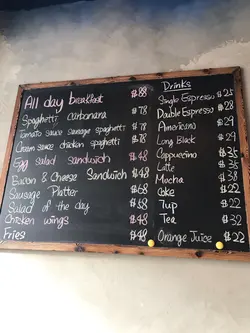 All day breakfast $88
Spaghetti carbonara $78
Tomato sauce sausage spaghetti $78
Cream sauce chicken spaghetti $78
Egg salad Sandwich $48
Bacon & Cheese Sandwich $48
Sausage Platter $68
Salad of the day $58
Chicken wings $48
Fries $48
Drinks
Single Espresso $25
Double Espresso $28
Americano $29
Long Black $29
Cappuccino $35
Latte $36
Mocha $38
Coke $22
7up $22
Tea $32
Orange Juice $22